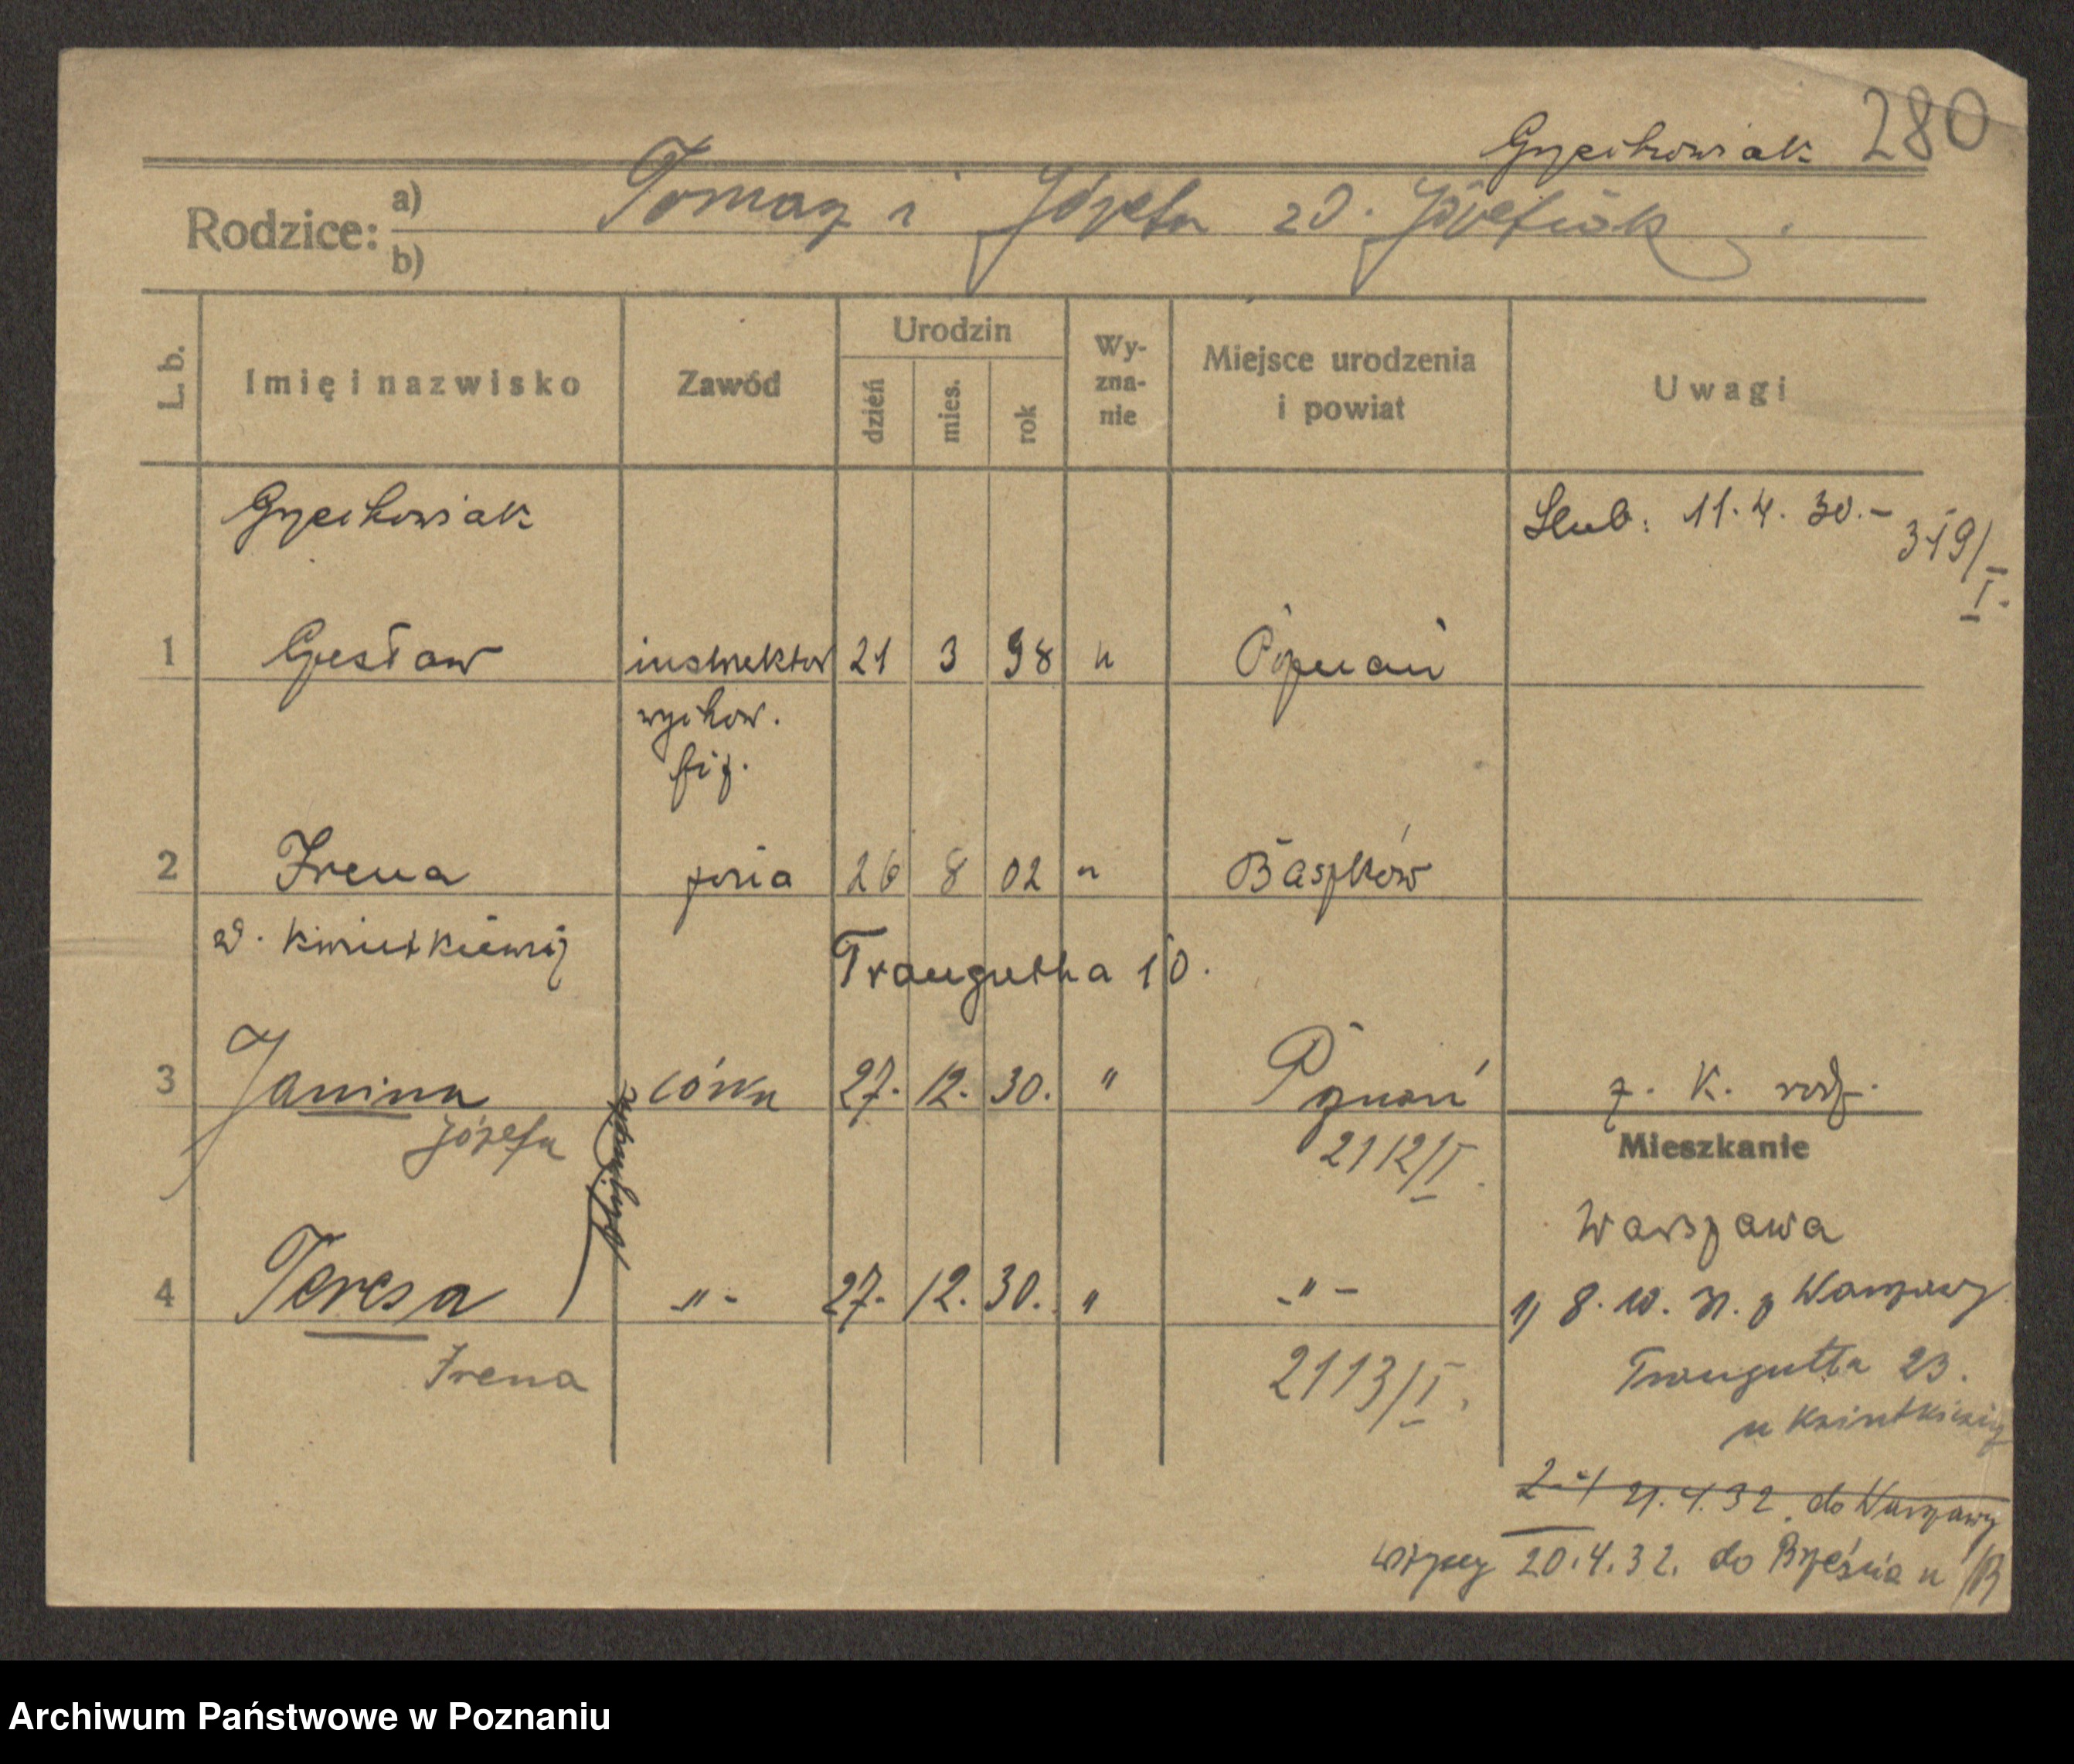 Grzechowiak 280
Rodzice: a) b) Tomasz i Józefa zd. Józefiak.
L. b. Imię i nazwisko Zawód Urodzin dzień mies. rok Wy-zna-nie Miejsce urodzenia i powiat Uwagi
Grzechowiak Ślub: 11.4.30.- 319/I.
1 Czesław instruktor 21 3 98 k Poznań
wychow.
fiz.
2 Irena żona 26 8 02 " Baszków
zd. Kwietkiewicz Traugutta 10.
3 Janina córka 27. 12. 30. " Poznań z. K. rodz.
Józefa 2112/I.
Mieszkanie
Warszawa
4 Teresa -"- 27. 12. 30. " -"- 1) 8.10.31. z Warszawy
Traugutta 23.
Irena 2113/I. u Kwietkiewicz
21.4.32. do Warszawy
wszyscy 20.4.32. do Brześcia n/B
Archiwum Państwowe w Poznaniu